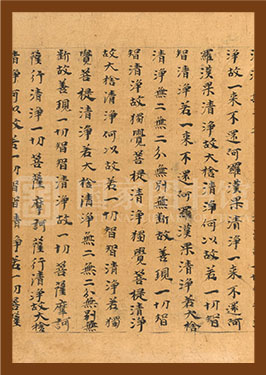 淨故一来不還阿羅漢果清淨一来不還阿
羅漢果清淨故大捨清淨何以故若一切智
智清淨若一来不還阿羅漢果清淨若大捨
清淨無二無二分無別無斷故善現一切智
智清淨故獨覺菩提清淨獨覺菩提清淨
故大捨清淨何以故若一切智智清淨若獨
覺菩提清淨若大捨清淨無二無二分無別無
斷故善現一切智智清淨故一切菩薩摩訶
薩行清淨一切菩薩摩訶薩行清淨故大捨
清淨何以故若一切智智清淨